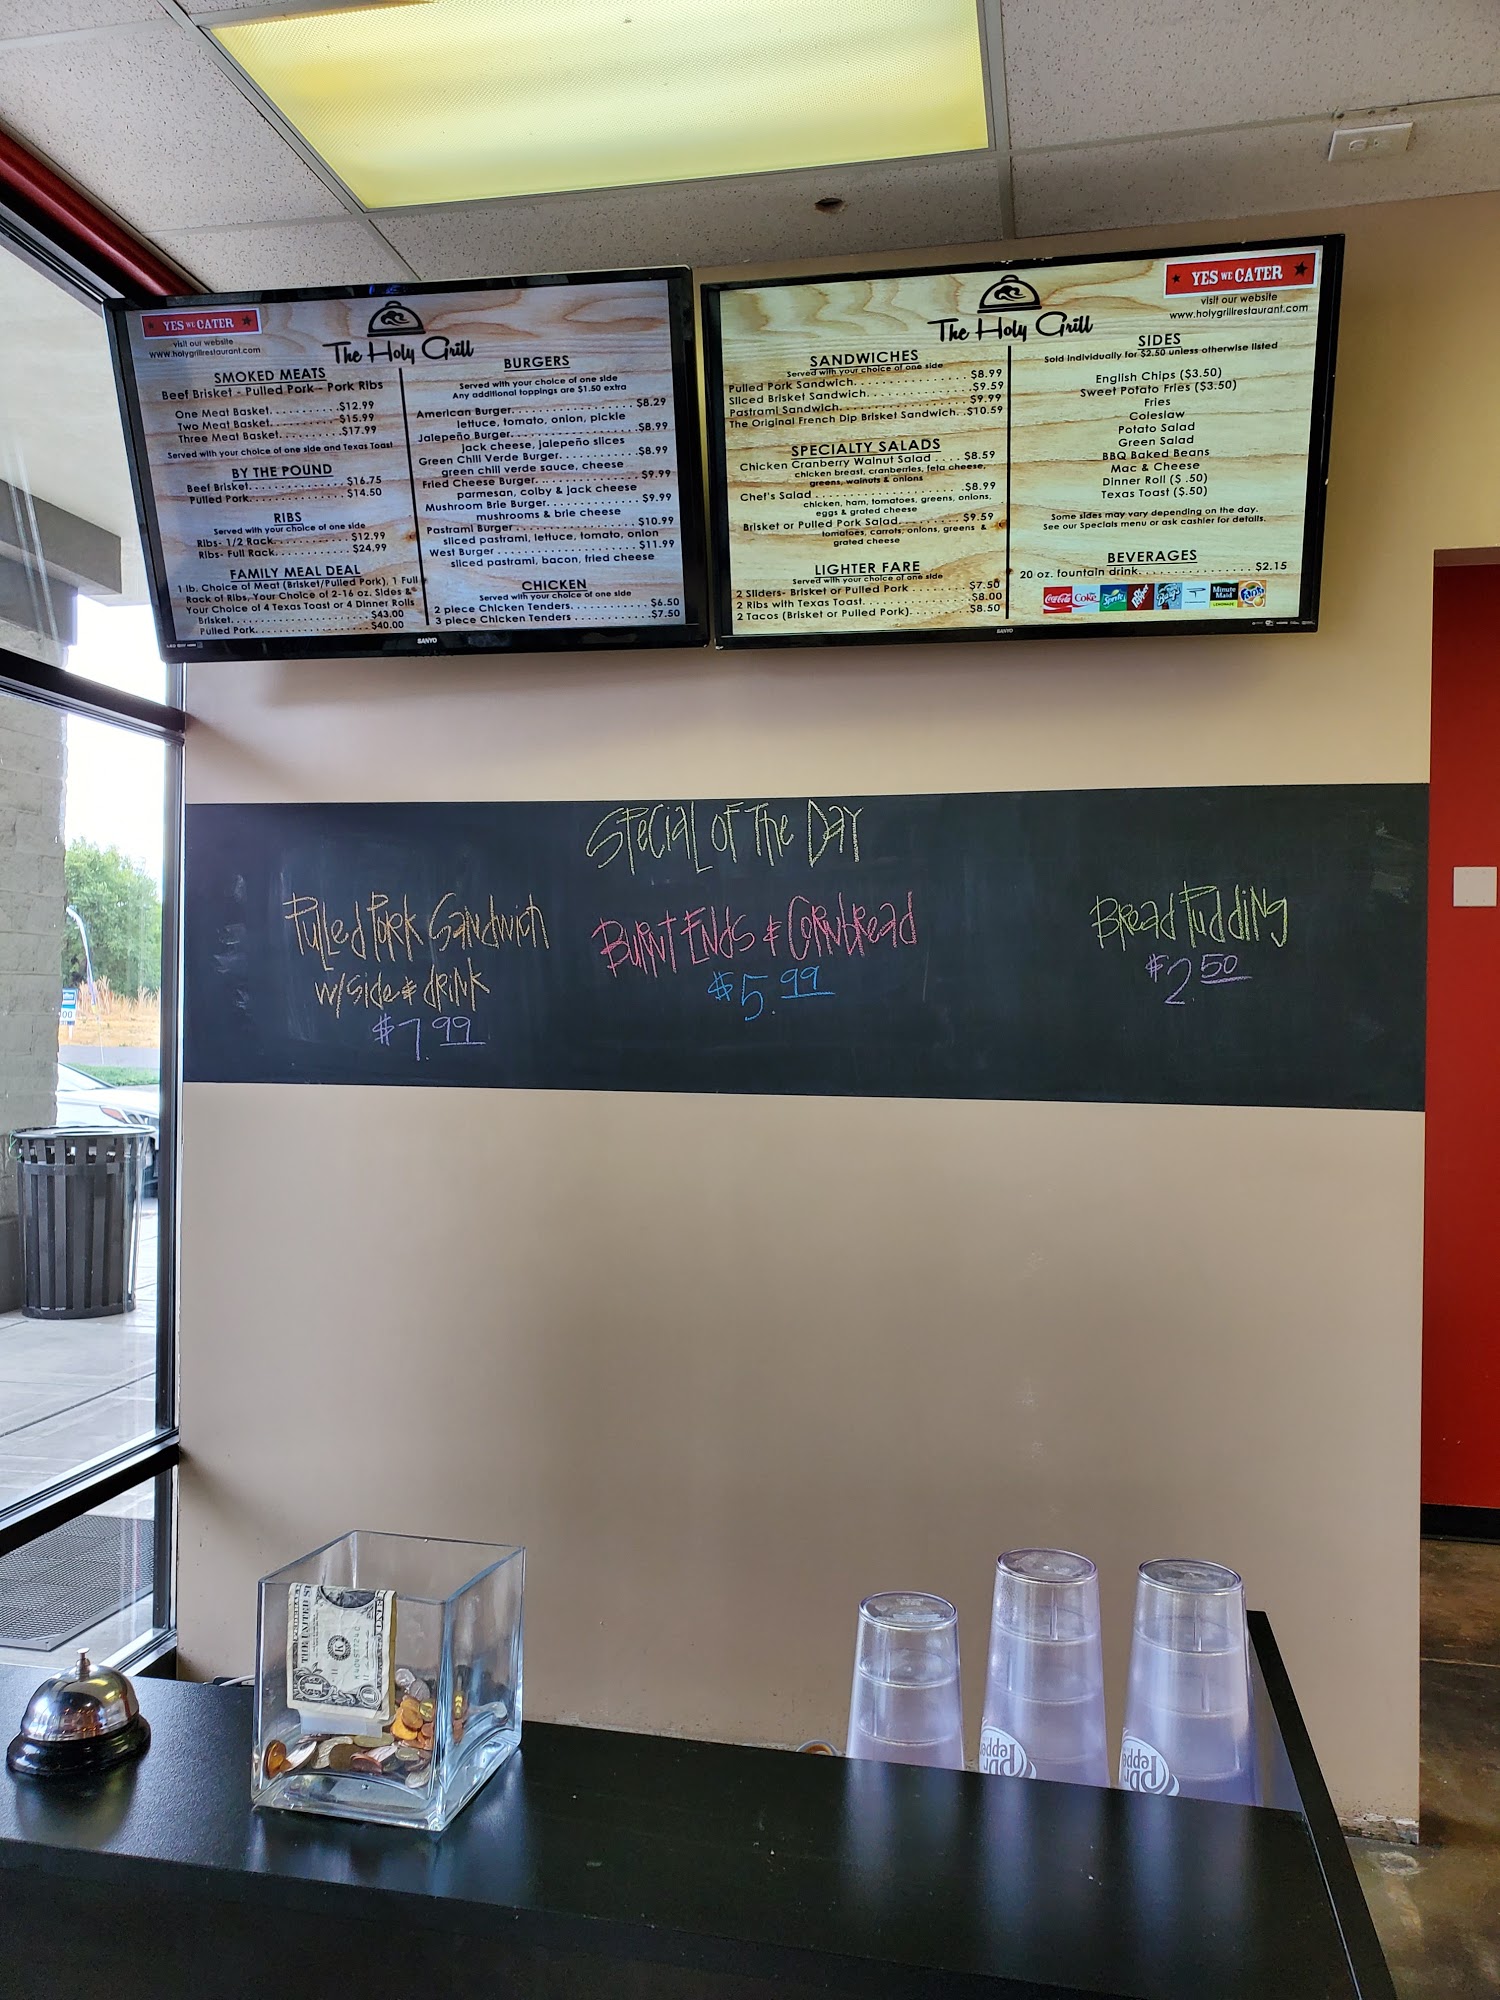 YES WE CATER
visit our website
www.holygrillrestaurant.com
The Holy Grill
SMOKED MEATS
Beef Brisket - Pulled Pork - Pork Ribs
One Meat Basket. . . . . . . . . . .$12.99
Two Meat Basket. . . . . . . . . . .$15.99
Three Meat Basket. . . . . . . . . .$17.99
Served with your choice of one side and Texas Toast
BY THE POUND
Beef Brisket. . . . . . . . . . . . . . . $16.75
Pulled Pork. . . . . . . . . . . . . . . $14.50
RIBS
Served with your choice of one side
Ribs- 1/2 Rack. . . . . . . . . . . . . $12.99
Ribs- Full Rack. . . . . . . . . . . . . $24.99
FAMILY MEAL DEAL
1 lb. Choice of Meat (Brisket/Pulled Pork), 1 Full
Rack of Ribs, Your Choice of 2-16 oz. Sides &
Your Choice of 4 Texas Toast or 4 Dinner Rolls
Brisket. . . . . . . . . . . . . . . . . . . $43.00
Pulled Pork. . . . . . . . . . . . . . . . $40.00
BURGERS
Served with your choice of one side
Any additional toppings are $1.50 extra
American Burger. . . . . . . . . . . . . . . . $8.29
lettuce, tomato, onion, pickle
Jalepeño Burger. . . . . . . . . . . . . . . . $8.99
jack cheese, jalepeño slices
Green Chili Verde Burger. . . . . . . . . . $8.99
green chill verde sauce, cheese
Fried Cheese Burger. . . . . . . . . . . . . $9.99
parmesan, colby & jack cheese
Mushroom Brie Burger. . . . . . . . . . . . $9.99
mushrooms & brie cheese
Pastrami Burger . . . . . . . . . . . . . . . $10.99
sliced pastrami, lettuce, tomato, onion
West Burger . . . . . . . . . . . . . . . . . . $11.99
sliced pastrami, bacon, fried cheese
CHICKEN
Served with your choice of one side
2 piece Chicken Tenders. . . . . . . . . . $6.50
3 piece Chicken Tenders . . . . . . . . . .$7.50
SANYO
YES WE CATER
visit our website
www.holygrillrestaurant.com
The Holy Grill
SANDWICHES
Served with your choice of one side
Pulled Pork Sandwich. . . . . . . . . . . . . . . $8.99
Sliced Brisket Sandwich. . . . . . . . . . . . . .$9.59
Pastrami Sandwich. . . . . . . . . . . . . . . . . $9.99
The Original French Dip Brisket Sandwich. .$10.59
SPECIALTY SALADS
Chicken Cranberry Walnut Salad . . . . $8.59
chicken breast, cranberries, feta cheese,
greens, walnuts & onions
Chef's Salad . . . . . . . . . . . . . . . . . . .$8.99
chicken, ham, tomatoes, greens, onions,
eggs & grated cheese
Brisket or Pulled Pork Salad. . . . . . . . $9.59
tomatoes, carrots, onions, greens &
grated cheese
LIGHTER FARE
Served with your choice of one side
2 Sliders- Brisket or Pulled Pork . . . . . . . $7.50
2 Ribs with Texas Toast. . . . . . . . . . . . . $8.00
2 Tacos (Brisket or Pulled Pork). . . . . . . $8.50
SIDES
Sold individually for $2.50 unless otherwise listed
English Chips ($3.50)
Sweet Potato Fries ($3.50)
Fries
Coleslaw
Potato Salad
Green Salad
BBQ Baked Beans
Mac & Cheese
Dinner Roll ($ .50)
Texas Toast ($.50)
Some sides may vary depending on the day.
See our Specials menu or ask cashier for details.
BEVERAGES
20 oz. fountain drink. . . . . . . . . . . . . . . $2.15
Coca-Cola
Coke
Sprite
Barq's
Minute Maid
LEMONADE
Fanta
SANYO
Special of the Day
Pulled Pork Sandwich
w/side & drink
$7.99
Burnt Ends & Cornbread
$5.99
Bread Pudding
$2.50
THE UNITED STATES
Dr Pepper
Dr Pepper